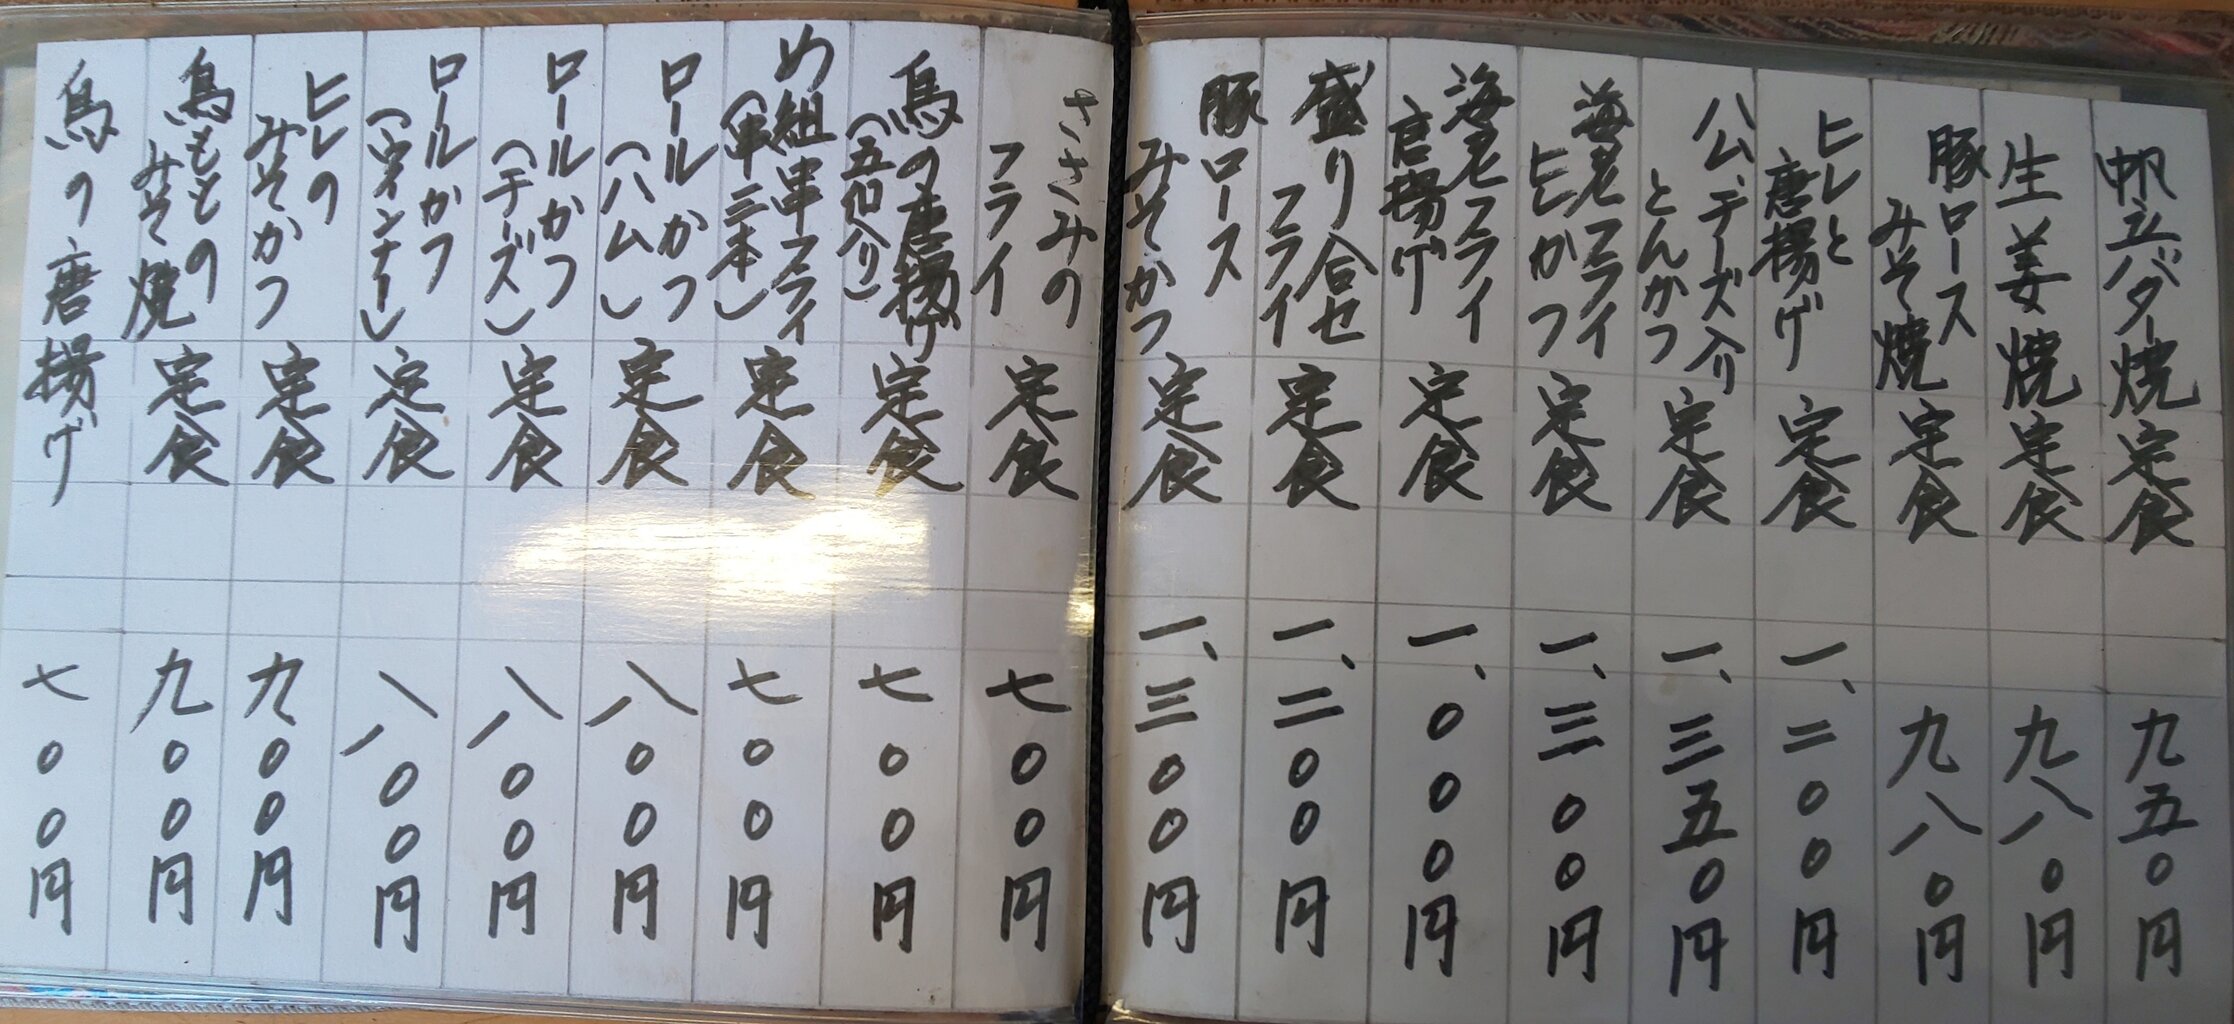 帆立バター焼定食 九五〇円
生姜焼定食 九八〇円
豚ロース
みそ焼定食 九八〇円
ヒレと
唐揚げ定食 一、二〇〇円
ハム、チーズ入り
とんかつ定食 一、三五〇円
海老フライ
ヒレかつ定食 一、三〇〇円
海老フライ
唐揚げ定食 一、〇〇〇円
盛り合せ
フライ定食 一、二〇〇円
豚ロース
みそかつ定食 一、三〇〇円
ささみの
フライ定食 七〇〇円
鳥の唐揚げ
(五個入り)定食 七〇〇円
め組串フライ
(串三本)定食 七〇〇円
ロールかつ
(ハム)定食 八〇〇円
ロールかつ
(チーズ)定食 八〇〇円
ロールかつ
(ウインナー)定食 八〇〇円
ヒレの
みそかつ定食 九〇〇円
鳥ももの
みそ焼定食 九〇〇円
鳥の唐揚げ 七〇〇円